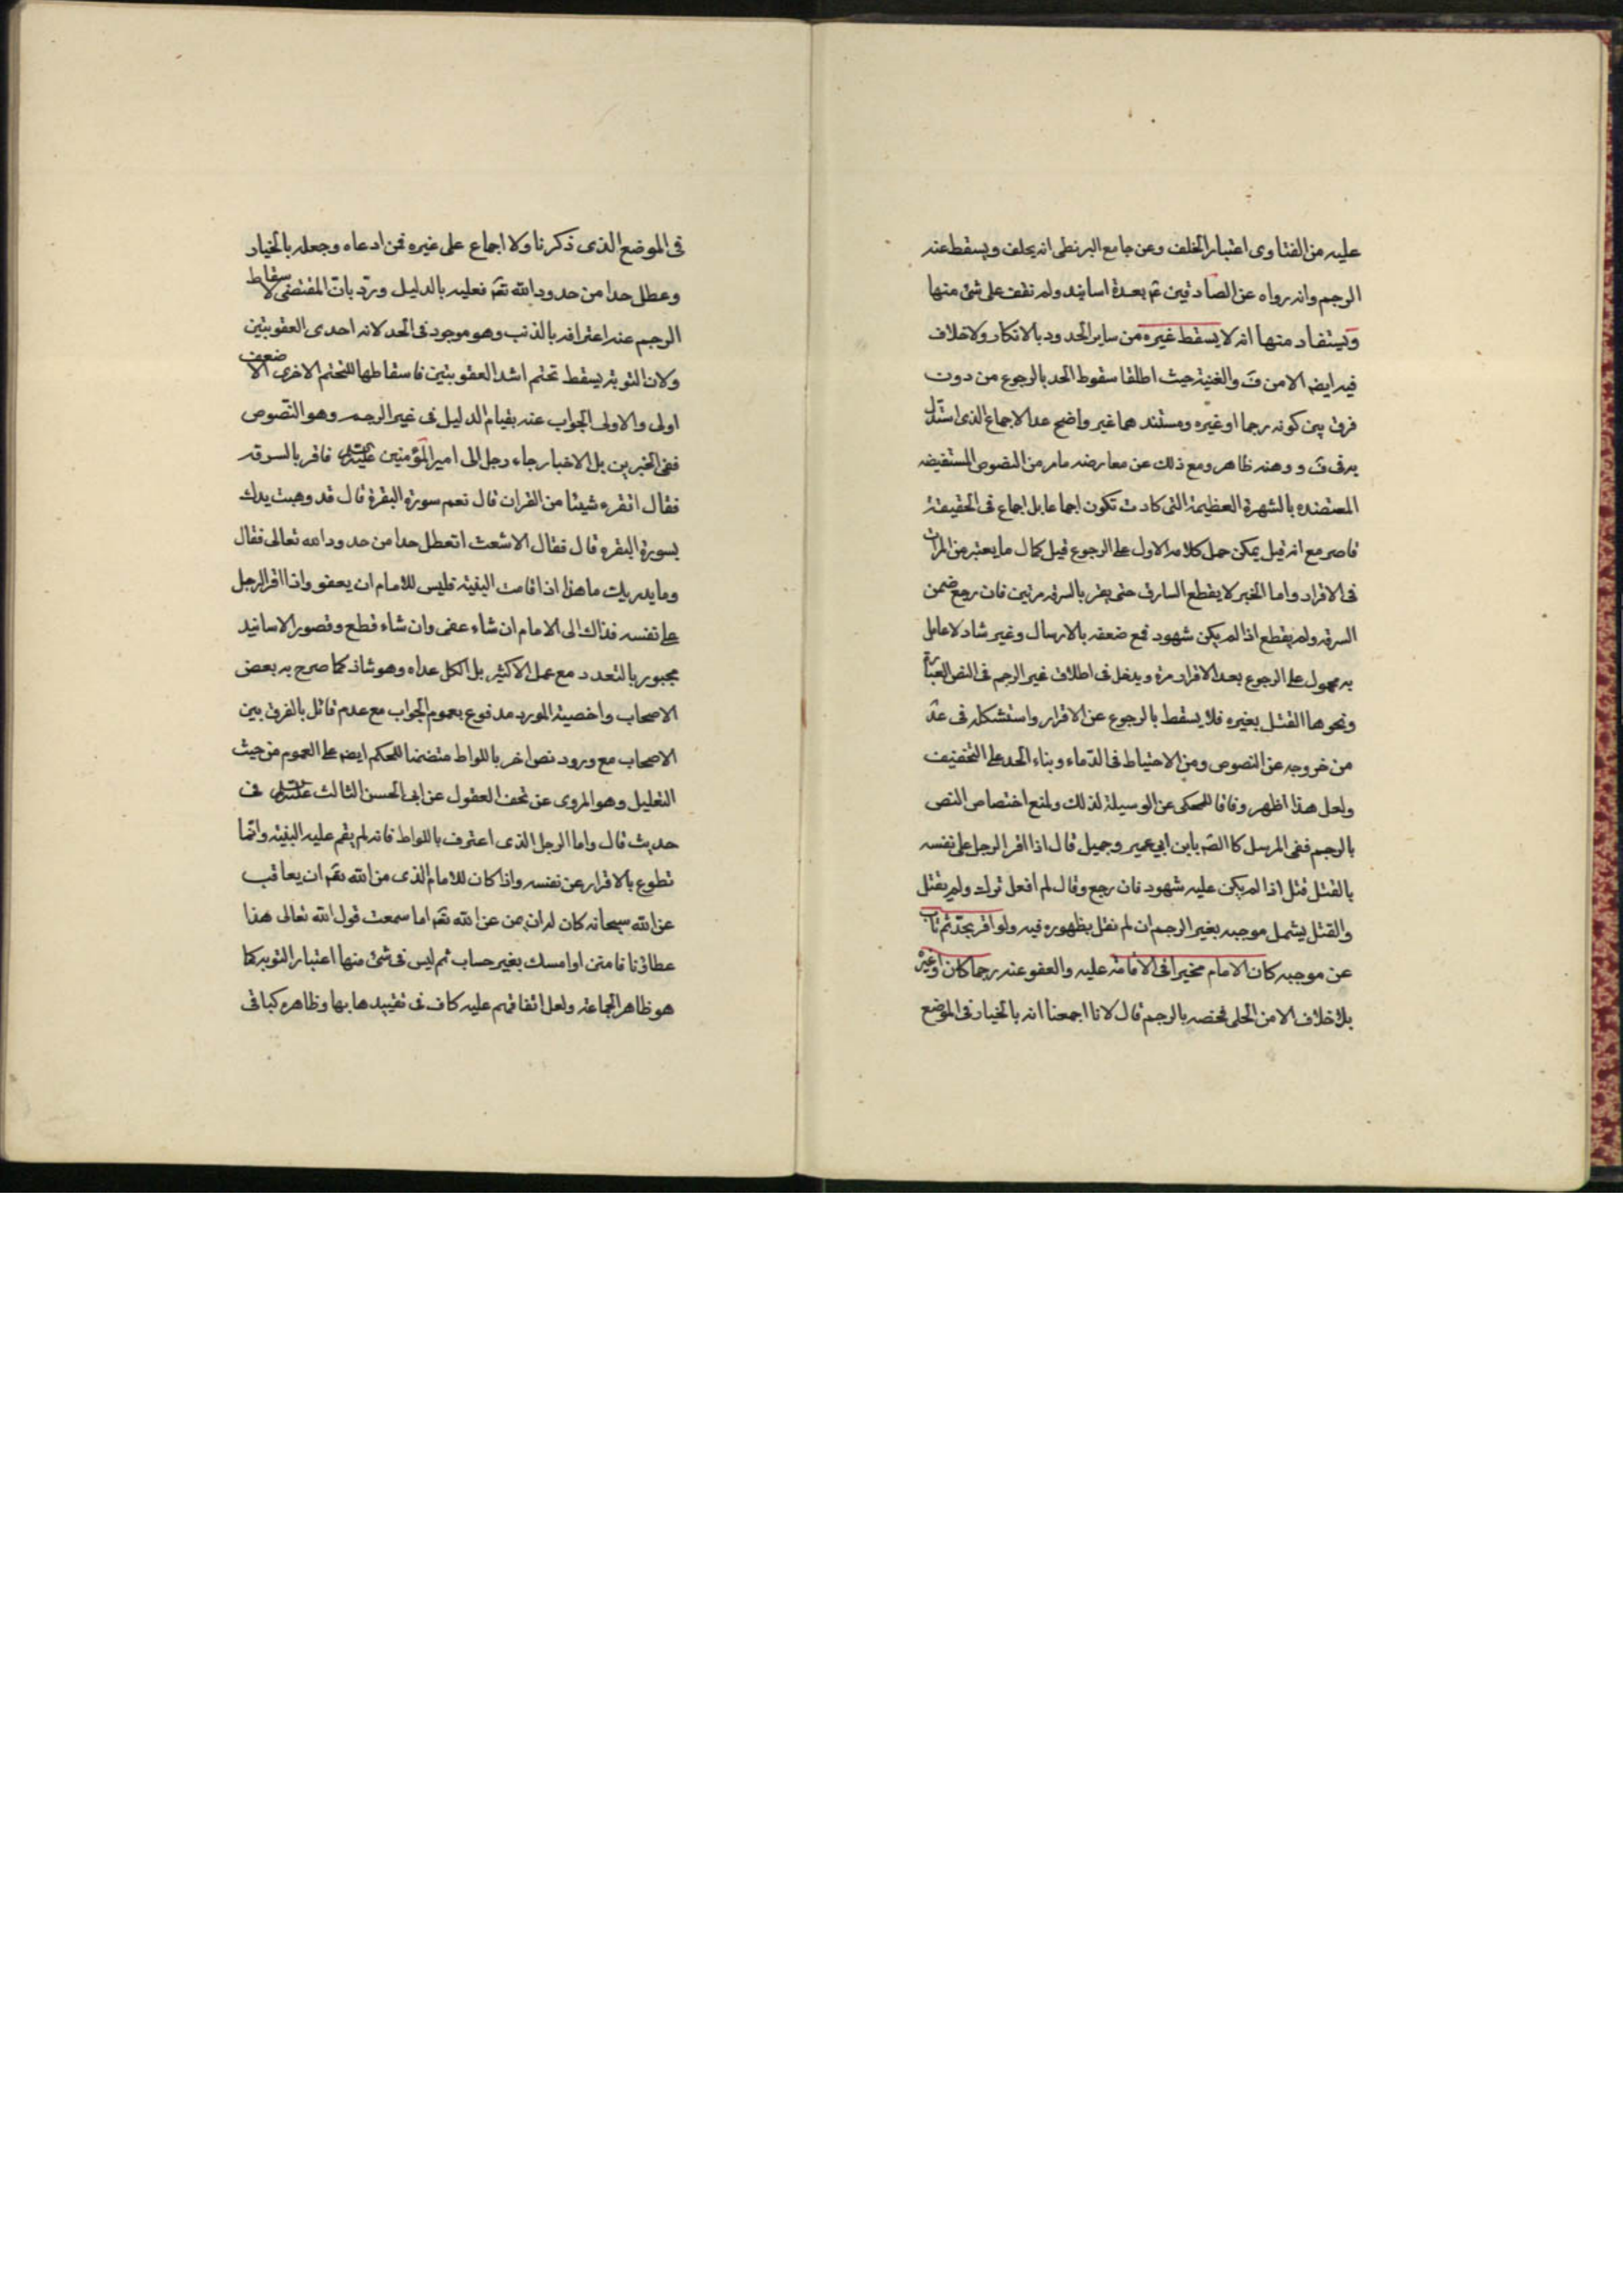 عليه من الفتاوى اعتبار الحلف وعن جامع البزنطى انه يحلف ويسقط عنه
الرجم وانه رواه عن الصادقين ع بعدة اسانيد ولم نقف على شئ منها
ويستفاد منها انه لا يسقط غيره من ساير الحدود بالانكار ولا خلاف
فيه ايضا الا من ف والغنية حيث اطلقا سقوط الحد بالرجوع من دون
فرق بين كونه رجما او غيره ومستندهما غير واضح عدا الاجماع الذى استدل
به فى ف ووهنه ظاهر ومع ذلك عن معارضه مامر من النصوص المستفيضه
المعتضده بالشهرة العظيمة التى كادت تكون اجماعا بل اجماع فى الحقيقة
قاصر مع انه قيل يمكن حمل كلامه الاول على الرجوع قبل كمال ما يعتبر من المرات
فى الاقرار واما الخبر لا يقطع السارق حتى يقر بالسرقه مرتين فان رجع ضمن
السرقه ولم يقطع اذا لم يكن شهود فمع ضعفه بالارسال وغير شاذ لا عامل
به محمول على الرجوع بعد الاقرار مرة ويدخل فى اطلاق غير الرجم فى النص العبارة
ونحوها القتل بغيره فلا يسقط بالرجوع عن الاقرار واستشكله فى عد
من خروجه عن النصوص ومن الاحتياط فى الدماء وبناء الحد على التخفيف
ولعل هذا اظهر وفاقا للمحكى عن الوسيلة لذلك ولمنع اختصاص النص
بالرجم ففى المرسل كالصه بابن ابى عمير وجميل قال اذا اقر الرجل على نفسه
بالقتل قتل اذا لم يكن عليه شهود فان رجع وقال لم افعل ترك ولم يقتل
والقتل يشمل موجبه بغير الرجم ان لم نقل بظهوره فيه ولو اقر بحد ثم تاب
عن موجبه كان الامام مخيرا فى الاقامة عليه والعفو عنه رجما كان او غيره
بلا خلاف الا من الحلى فخصه بالرجم قال لانا اجمعنا انه بالخيار فى الموضع
فى الموضع الذى ذكرنا ولا اجماع على غيره فمن ادعاه وجعله بالخيار
وعطل حدا من حدود الله تعه فعليه بالدليل ورد بات المقتضى لاسقاط
الرجم عنه اعترافه بالذنب وهو موجود فى الحد لانه احدى العقوبتين
ولان التوبة يسقط تحتم اشد العقوبتين فاسقاطها للتحتم الاخرى الاضعف
اولى والاولى الجواب عنه بقيام الدليل فى غير الرجم وهو النصوص
ففى الخبرين بل الاخبار جاء رجل الى امير المؤمنين عليه السلام فاقر بالسرقه
فقال اتقره شيئا من القران قال نعم سورة البقرة قال قد وهبت يدك
بسورة البقره قال فقال الاشعث اتعطل حدا من حدود الله تعالى فقال
وما يدريك ما هذا اذا قامت البينة فليس للامام ان يعفو واذا اقر الرجل
على نفسه فذاك الى الامام ان شاء عفى وان شاء قطع وقصور الاسانيد
مجبور بالتعدد مع عمل الاكثر بل الكل عداه وهو شاذ كما صرح به بعض
الاصحاب واخصية المورد مدفوع بعموم الجواب مع عدم قائل بالفرق بين
الاصحاب مع ورود نص اخر باللواط متضمنا للحكم ايضا على العموم من حيث
التعليل وهو المروى عن تحف العقول عن ابى الحسن الثالث عليه السلام فى
حديث قال واما الرجل الذى اعترف باللواط فانه لم يقم عليه البينه وانما
تطوع بالاقرار عن نفسه واذا كان للامام الذى من الله تعه ان يعاقب
عن الله سبحانه كان له ان يمن عن الله تعه اما سمعت قول الله تعالى هذا
عطائنا فامنن او امسك بغير حساب ثم ليس فى شئ منها اعتبار التوبه كما
هو ظاهر الجماعة ولعل اتفاقهم عليه كاف فى تقييدها بها وظاهره كباقى